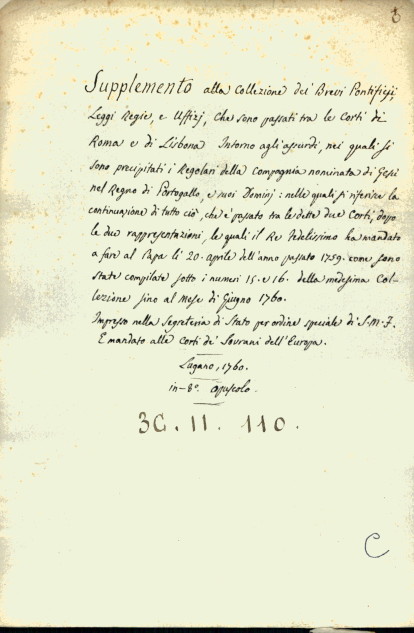 8
Supplemento alla Collezione dei Brevi Pontifizj,
Leggi Regie, e Uffizj, che sono passati tra le Corti di
Roma e di Lisbona Intorno agli assurdi, nei quali si
sono precipitati i Regolari della Compagnia nominata di Gesù
nel Regno di Portogallo, e suoi Dominj: nelle quali si riferisce la
continuazione di tutto ciò, che è passato tra le dette due Corti, dopo
le due rappresentazioni, le quali il Re Fedelissimo ha mandato
a fare al Papa li 20. aprile dell'anno passato 1759. come sono
State compilate sotto i numeri 15. e 16. della medesima Col-
lezione fino al Mese di Giugno 1760.
Impresso nella Segreteria di Stato per ordine speciale di S. M. F.
E mandato alle Corti de' Sovrani dell'Europa.
Lugano, 1760.
in-8º. opuscolo.
36. 11. 110.
C